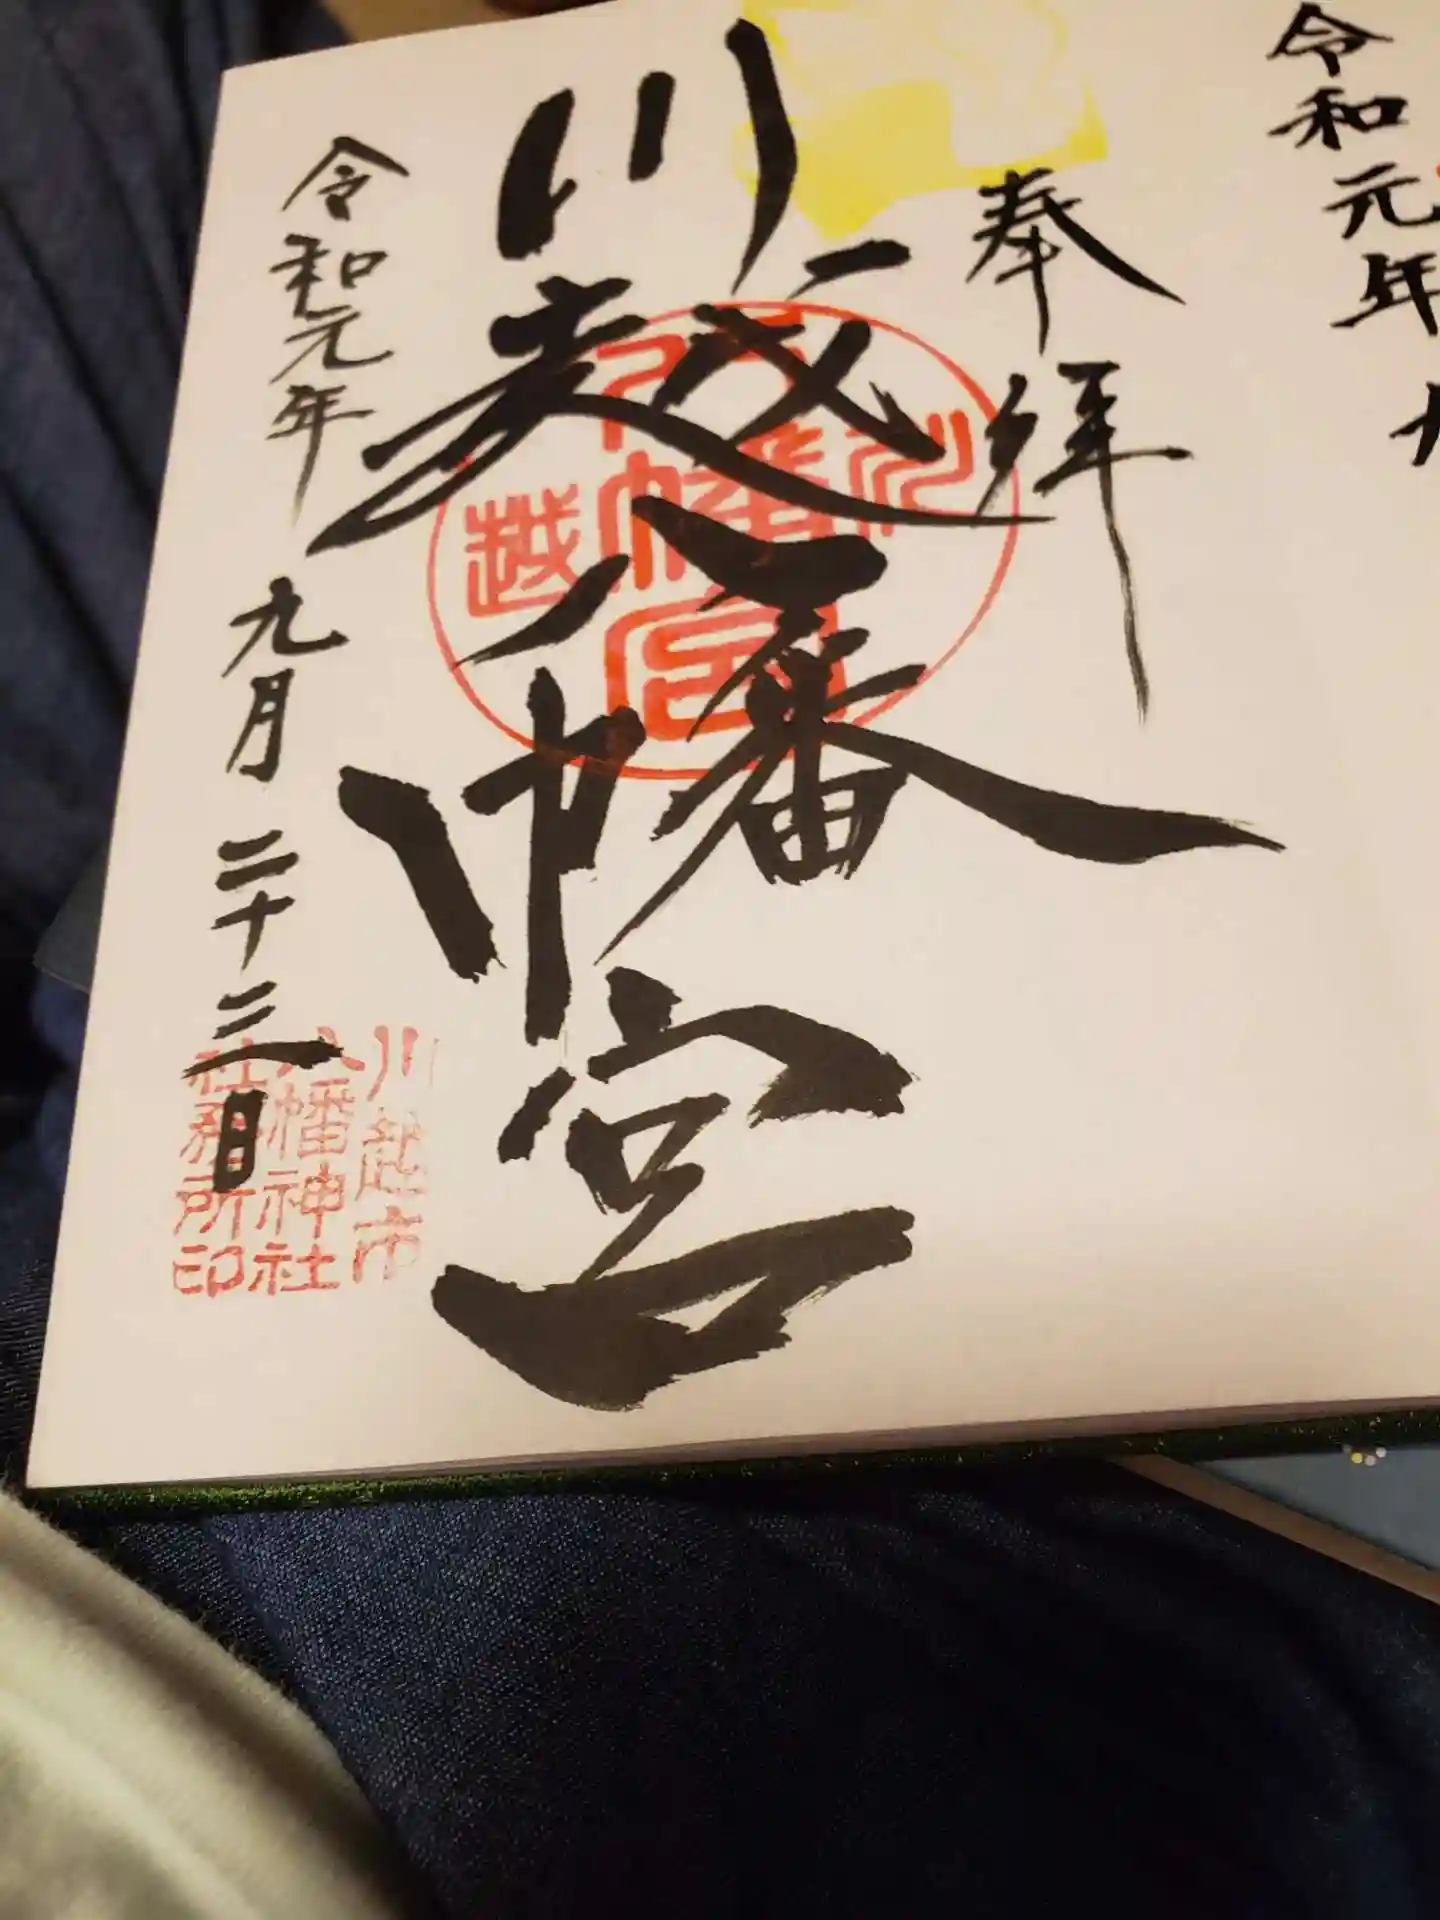 令和元年
奉拝
川越八幡宮
川越
八幡宮
令和元年九月二十三日
川越市
八幡神社
社務所印